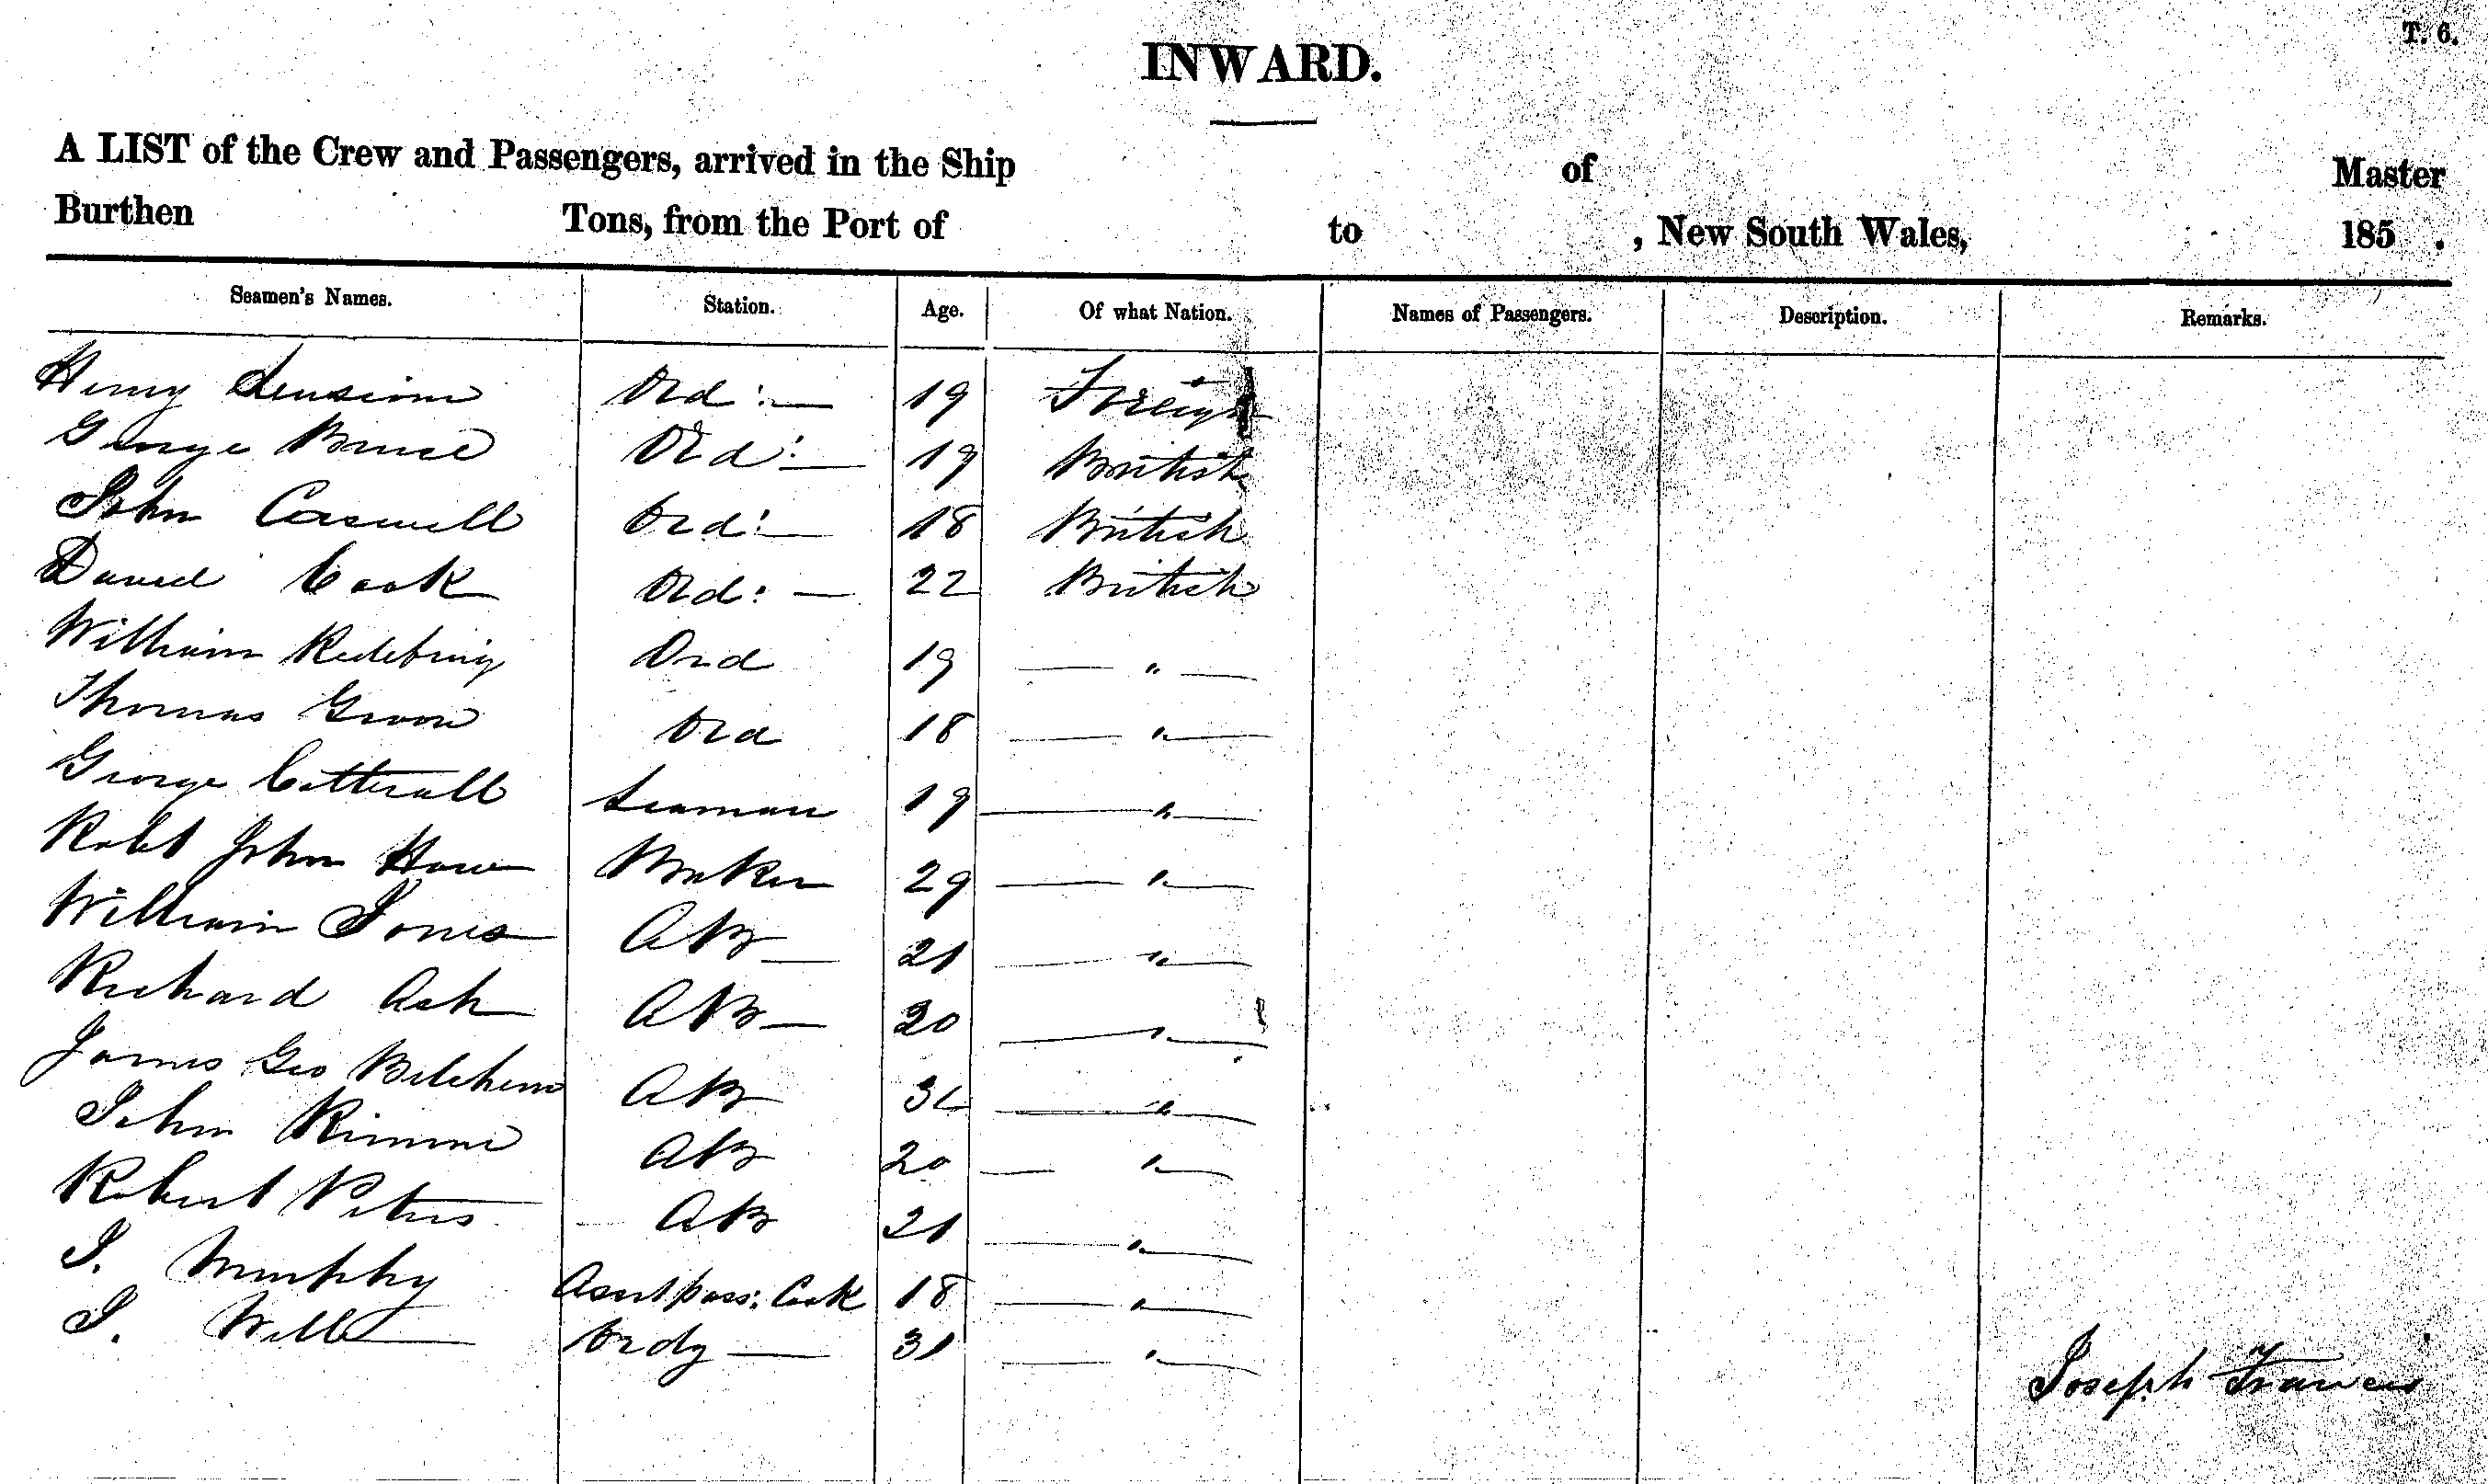 T. 6.
INWARD.
A LIST of the Crew and Passengers, arrived in the Ship of Master
Burthen Tons, from the Port of to , New South Wales, 185 .
Seamen's Names. Station. Age. Of what Nation. Names of Passengers. Description. Remarks.
Henry Ord: — 19 Foreign
George Bruce Ord: — 19 British
John Caswell Ord: — 18 British
Daniel Cook Ord: — 22 British
William Ord 19 — " —
Thomas Ord 18 — " —
George Cotterall Seaman 19 — " —
Robt John Howe Baker 29 — " —
William Jones AB — 21 — " —
Richard Ash AB — 20 — " —
James Geo AB — " —
John AB 20 — " —
Robert Peters AB 21 — " —
J. Murphy Asst pass: Cook 18 — " —
J. Ordy — 31 — " —
Joseph Francis